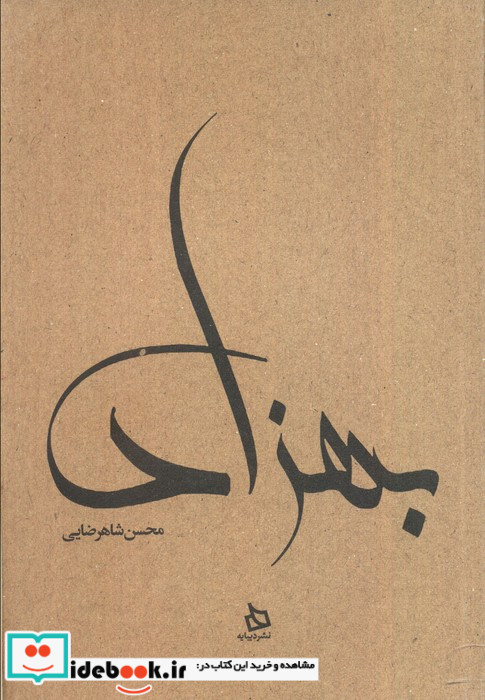 بهزاد
محسن شاهرضایی
نشر دیبایه
مشاهده و خرید این کتاب در:
idebook.ir